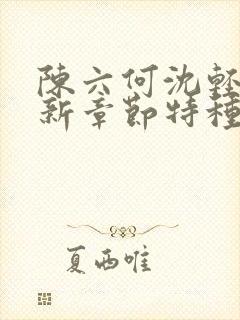 陳六何沈輕
新章節特種
夏西唯